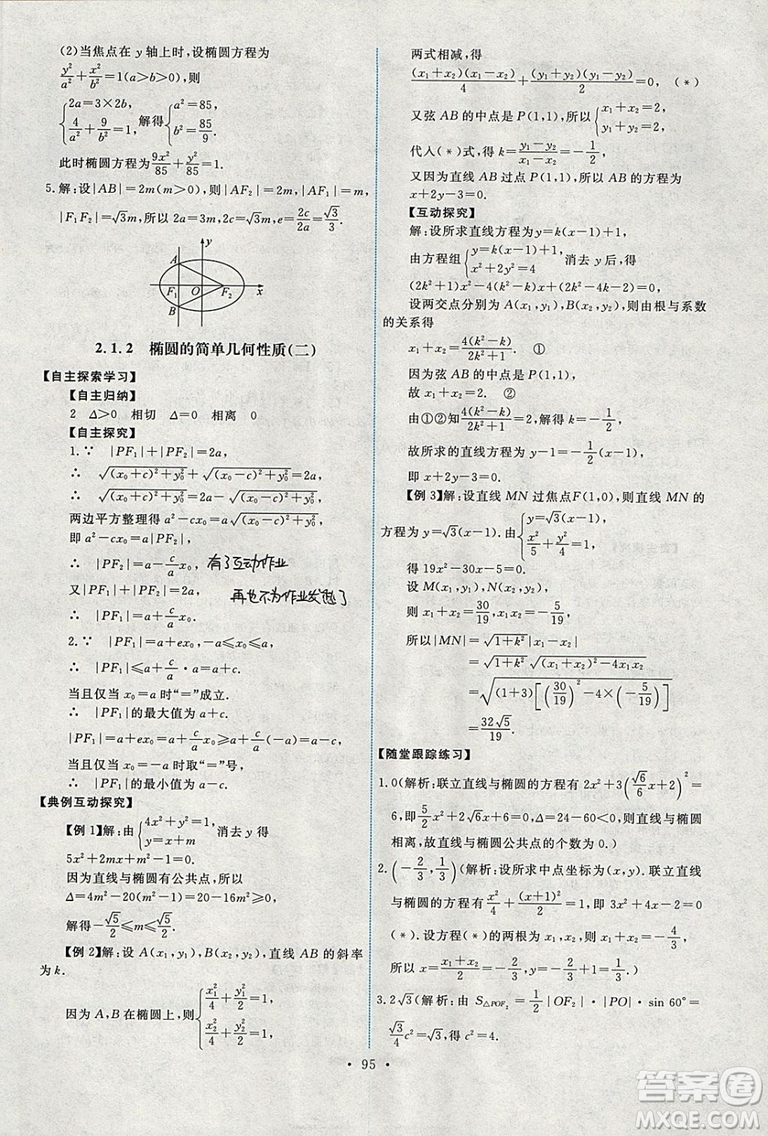 (2)当焦点在 y 轴上时,设椭圆方程为
y²/a²+x²/b²=1(a>b>0),则
{2a=3×2b, 4/a²+9/b²=1, 解得{a²=85, b²=85/9.
此时椭圆方程为 9x²/85+y²/85=1.
5.解:设|AB|=2m(m>0),则|AF₂|=2m,|AF₁|=m,
|F₁F₂|=√3m,所以 2a=3m,2c/2a=√3/3.
y
A
F₁ O F₂ x
B
2.1.2 椭圆的简单几何性质(二)
【自主探索学习】
【自主归纳】
2 Δ>0 相切 Δ=0 相离 0
【自主探究】
1.∵ |PF₁|+|PF₂|=2a,
∴ √((x₀+c)²+y₀²)+√((x₀-c)²+y₀²)=2a,
∴ √((x₀+c)²+y₀²)=2a-√((x₀-c)²+y₀²),
两边平方整理得 a²-cx₀=a√((x₀-c)²+y₀²),
即 a²-cx₀=a|PF₂|,
∴ |PF₂|=a-c/a x₀, 有了互动作业
又|PF₁|+|PF₂|=2a, 再也不为作业发愁了
∴ |PF₁|=a+c/a x₀.
2.∵ |PF₁|=a+ex₀,-a≤x₀≤a,
∴ |PF₁|≤a+c/a·a=a+c.
当且仅当 x₀=a时“=”成立.
∴ |PF₁|的最大值为 a+c.
|PF₁|=a+ex₀≥a+c/a×(-a)=a-c,
当且仅当 x₀=-a时取“=”号,
∴ |PF₁|的最小值为 a-c.
【典例互动探究】
【例 1】解:由{4x²+y²=1, y=x+m, 消去 y 得
5x²+2mx+m²-1=0.
因为直线与椭圆有公共点,所以
Δ=4m²-20(m²-1)=20-16m²≥0,
解得-√5/2≤m≤√5/2.
【例 2】解:设 A(x₁,y₁),B(x₂,y₂),直线 AB 的斜率
为 k.
因为 A,B 在椭圆上,所以{x₁²/4+y₁²/2=1, x₂²/4+y₂²/2=1,
两式相减,得
(x₁+x₂)(x₁-x₂)/4+(y₁+y₂)(y₁-y₂)/2=0, (*)
又弦 AB 的中点是 P(1,1),所以{x₁+x₂=2, y₁+y₂=2,
代入(*)式,得 k=(y₁-y₂)/(x₁-x₂)=-1/2,
又因为直线过点 P(1,1),所以直线 AB 的方程为
x+2y-3=0.
【互动探究】
解:设所求直线方程为 y-1=k(x-1),
由方程组{y=k(x-1)+1, x²+2y²=4, 消去 y,得
(2k²+1)x²-4(k²-k)x+2k²-4k-2=0.
设两交点分别为 A(x₁,y₁),B(x₂,y₂),则由根与系数
的关系得
x₁+x₂=4(k²-k)/(2k²+1). ①
因为弦 AB 的中点是 P(1,1),
故 x₁+x₂=2. ②
由①②知 4(k²-k)/(2k²+1)=2,解得 k=-1/2,
故所求的直线方程为 y-1=-1/2(x-1).
【例 3】解:设直线 MN 过焦点F(1,0),则直线 MN 的
方程为 y=√3(x-1). 由{y=√3(x-1), x²/5+y²/4=1,
得 19x²-30x-5=0.
设 M(x₁,y₁),N(x₂,y₂),
则 x₁+x₂=30/19,x₁x₂=-5/19,
所以|MN|=√(1+k²)|x₁-x₂|
=√(1+k²)√((x₁+x₂)²-4x₁x₂)
=√((1+3)[(30/19)²-4×(-5/19)])
=32√5/19.
【随堂跟踪练习】
1.0(解析:联立直线与椭圆的方程有 2x²+3(√6/6 x+2)²=
6,即5/2x²+2√6x+6=0,Δ=24-60<0,直线与椭圆
相离,故直线与椭圆公共点的个数为 0.)
2.(-2/3,1/3)(解析:设所求中点坐标为(x,y).联立直线
与椭圆的方程有x²/4+(x+1)²/2=1,整理得 3x²+4x-2=0
(*).设方程(*)的两根为 x₁,x₂,则 x₁+x₂=-4/3,
所以 x=(x₁+x₂)/2=-2/3,y=1/3.)
3.2√3(解析:由 S△POF₂=1/2|OF₂|·|PO|·sin 60°=
√3/4c²=√3,得 c²=4.
· 95 ·
答案圈
MXQE.COM